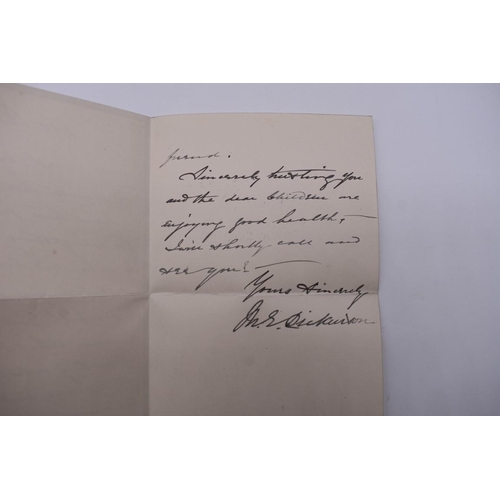 friend.
Sincerely trusting you
and the dear Children are
enjoying good health,
I will shortly call and
see you.
Yours Sincerely
M. E. Dickerson